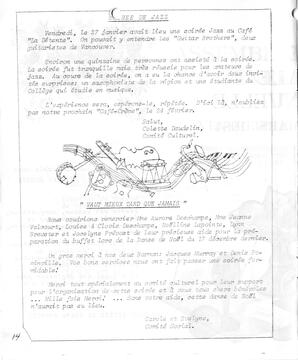 SOIREE DE JAZZ
Vendredi, le 27 janvier avait lieu une soirée Jazz au Café
"La Détente". On pouvait y entendre les "Guitar Brothers", deux
guitaristes de Vancouver.
Environ une quinzaine de personnes ont assisté à la soirée.
La soirée fut tranquille mais très réussie pour les amateurs de
Jazz. Au cours de la soirée, on a eu la chance d'avoir deux invi-
tés surprises: un saxophoniste de la région et une étudiante du
Collège qui étudie en musique.
L'expérience sera, espérons-le, répétée. D'ici là, n'oubliez
pas notre prochain "Café-Crème", le 24 février.
Salut,
Colette Beaudelin,
Comité Culturel.
" VAUT MIEUX TARD QUE JAMAIS "
Nous voudrions remercier Mme Aurore Deschamps, Mme Jeanne
Valcourt, Louise & Claude Deschamps, Rolline Lapointe, Lynn
et Jocelyne Prévost de leur précieuse aide pour la pré-
paration du buffet lors de la Danse de Noël du 17 décembre dernier.
Un gros merci à nos deux Barman: Jacques Murray et Denis
Vos bons services nous ont fait passer une soirée for-
midable!
Merci tout spécialement au comité culturel pour leur support
pour l'organisation de cette soirée et à tous nos chers bénévoles
... Mille fois Merci! ... Sans votre aide, cette danse de Noël
n'aurait pas eu lieu.
Carole et Evelyne,
Comité Social.
14